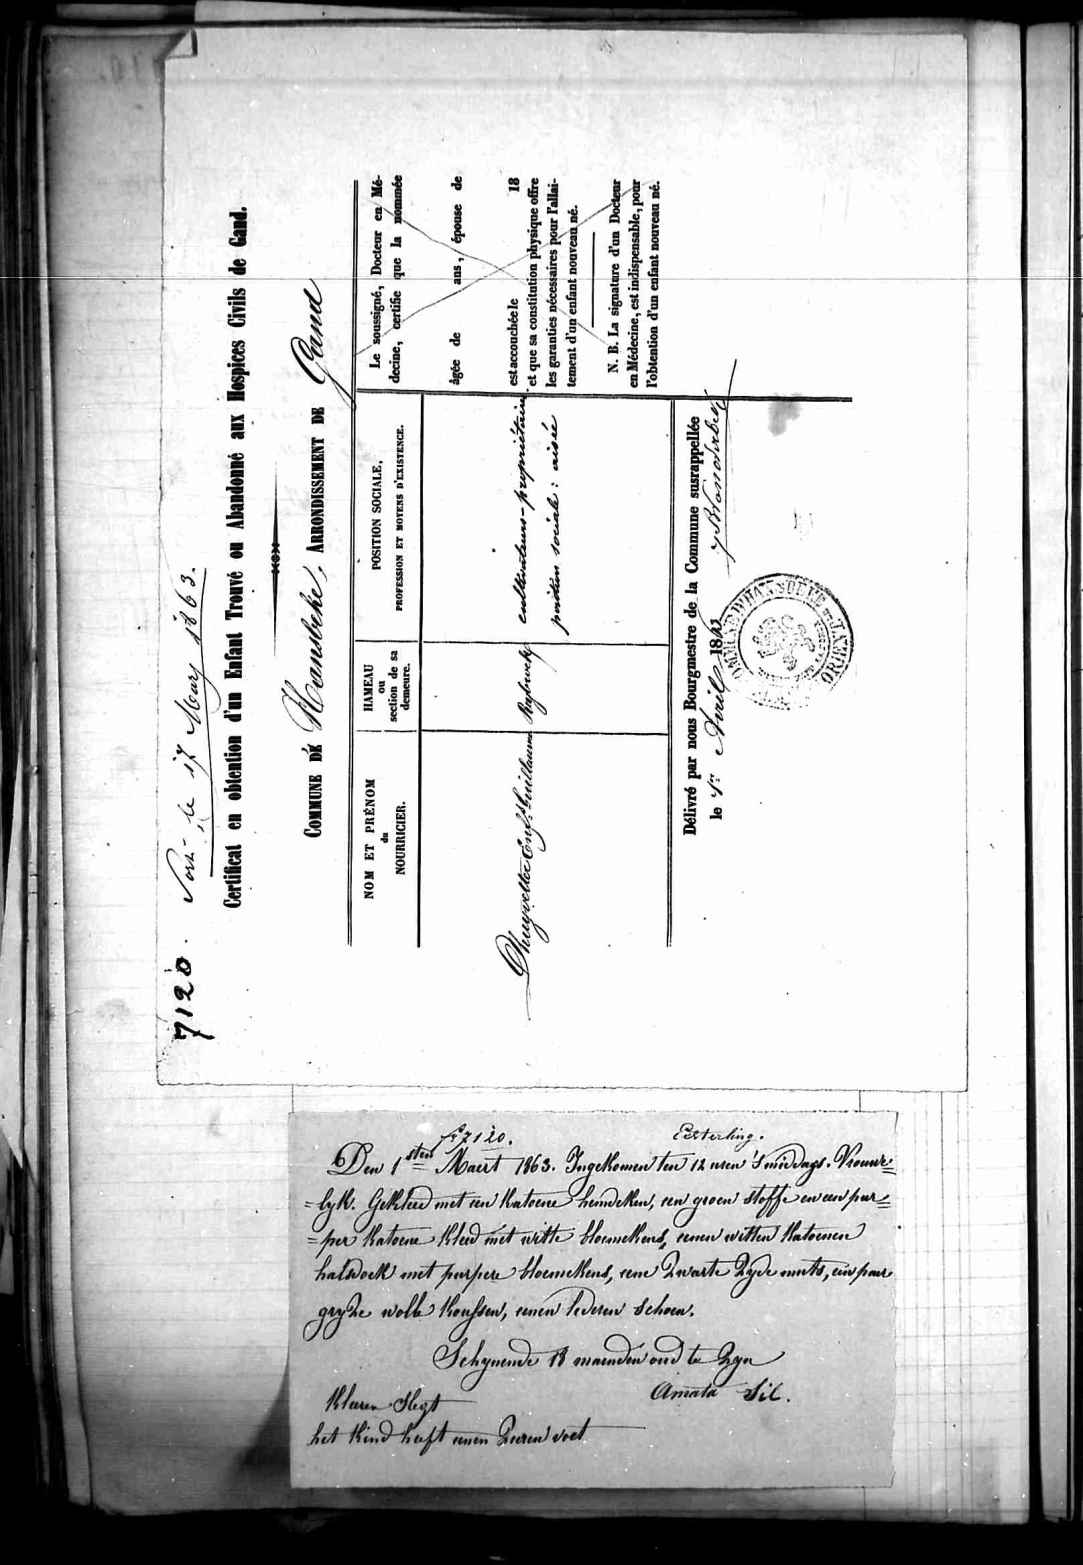 7120. Sorti le 17 Mars 1863.
Certificat en obtention d'un Enfant Trouvé ou Abandonné aux Hospices Civils de Gand.
COMMUNE DE Hansbeke, ARRONDISSEMENT DE Gand
NOM ET PRÉNOM
du
NOURRICIER.
HAMEAU
ou
section de sa
demeure.
POSITION SOCIALE,
PROFESSION ET MOYENS D'EXISTENCE.
Guillaume
cultivateurs-propriétaires
position sociale: aisée
Le soussigné, Docteur en Mé-
decine, certifie que la nommée
âgée de ans, épouse de
est accouchée le 18
et que sa constitution physique offre
les garanties nécessaires pour l'allai-
tement d'un enfant nouveau né.
N. B. La signature d'un Docteur
en Médecine, est indispensable, pour
l'obtention d'un enfant nouveau né.
Délivré par nous Bourgmestre de la Commune susrappellée
le 1r Avril 1863
No 7120. Esterling.
Den 1sten Maert 1863. Ingekomen ten 12 uren 's middags. Vrouwe=
=lyk. Gekleed met een katoene hemdeken, een groen stoffe en een pur=
=per katoene kleed met witte bloemekens, eenen witten katoenen
halsdoek met purpere bloemekens, eene zwarte zyde muts, een paer
gryze wolle koussen, eenen lederen schoen.
Schynende 18 maenden oud te zyn
Kleeren slegt Amata Sil.
het kind heeft eenen zeeren voet